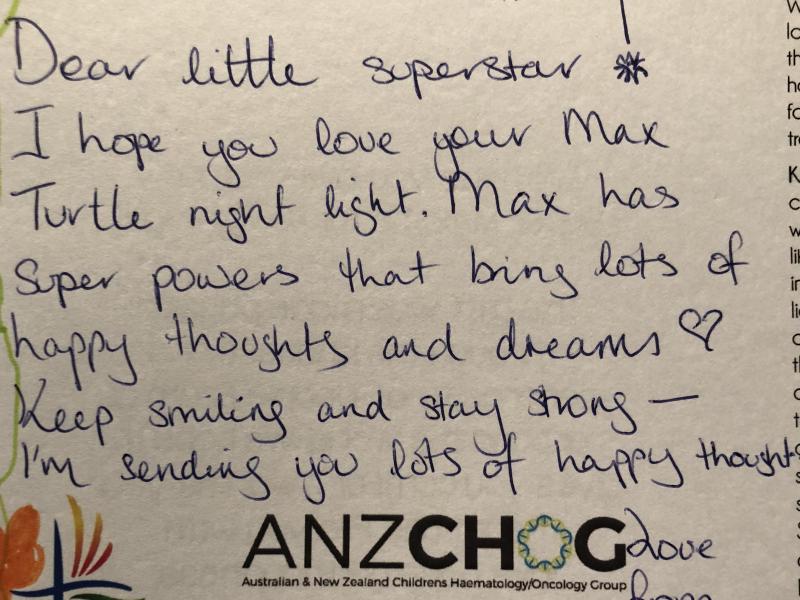 Dear little superstar *
I hope you love your Max
Turtle night light. Max has
Super powers that bring lots of
happy thoughts and dreams ♡
Keep smiling and stay strong —
I'm sending you lots of happy thought
ANZCHOG
Australian & New Zealand Childrens Haematology/Oncology Group
Love
from